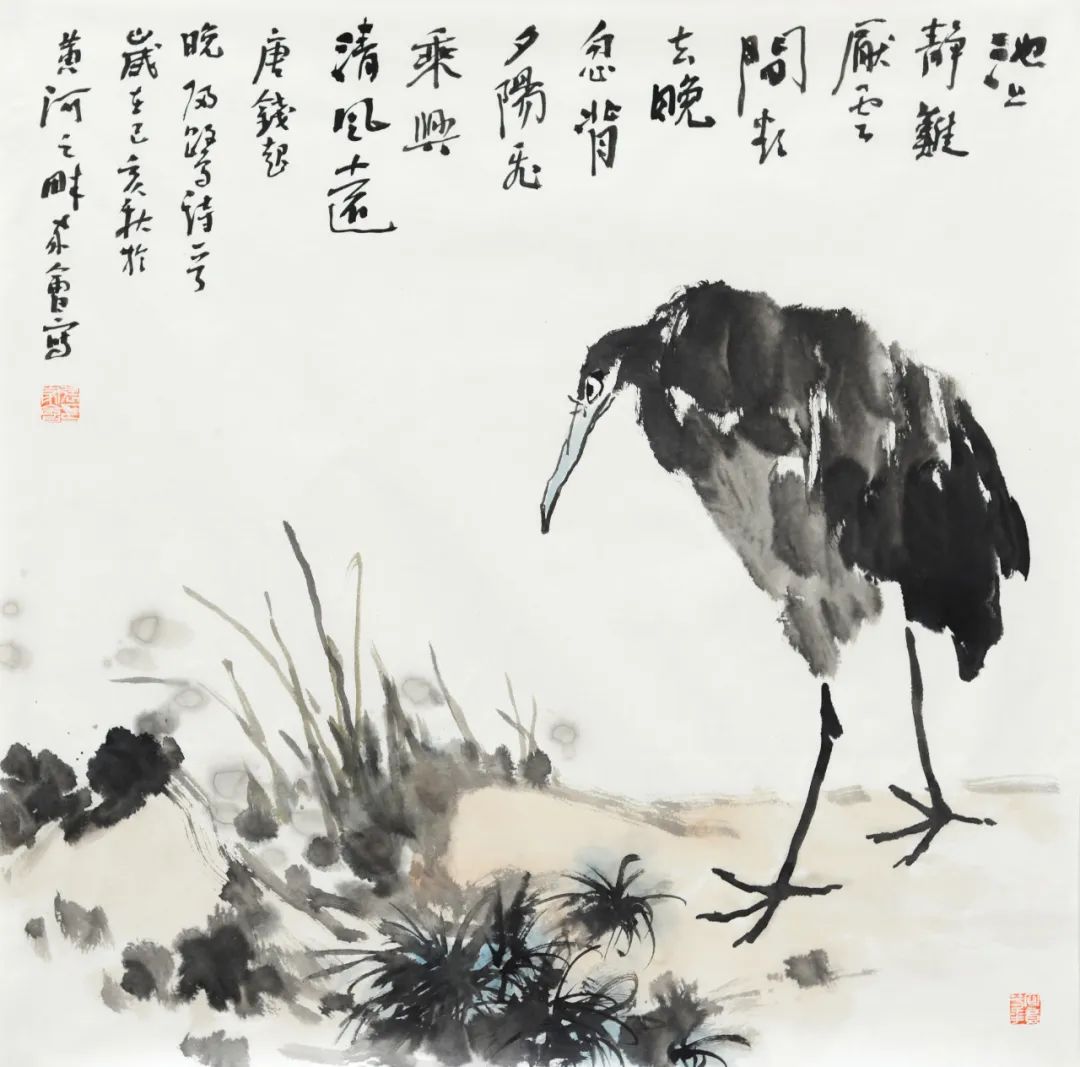 池上
靜難
厭雲
間欲
去晚
忽背
夕陽飛
乘興
清風遠
唐錢起
晚歸鷺詩一首
歲在己亥秋於
黄河之畔會寫